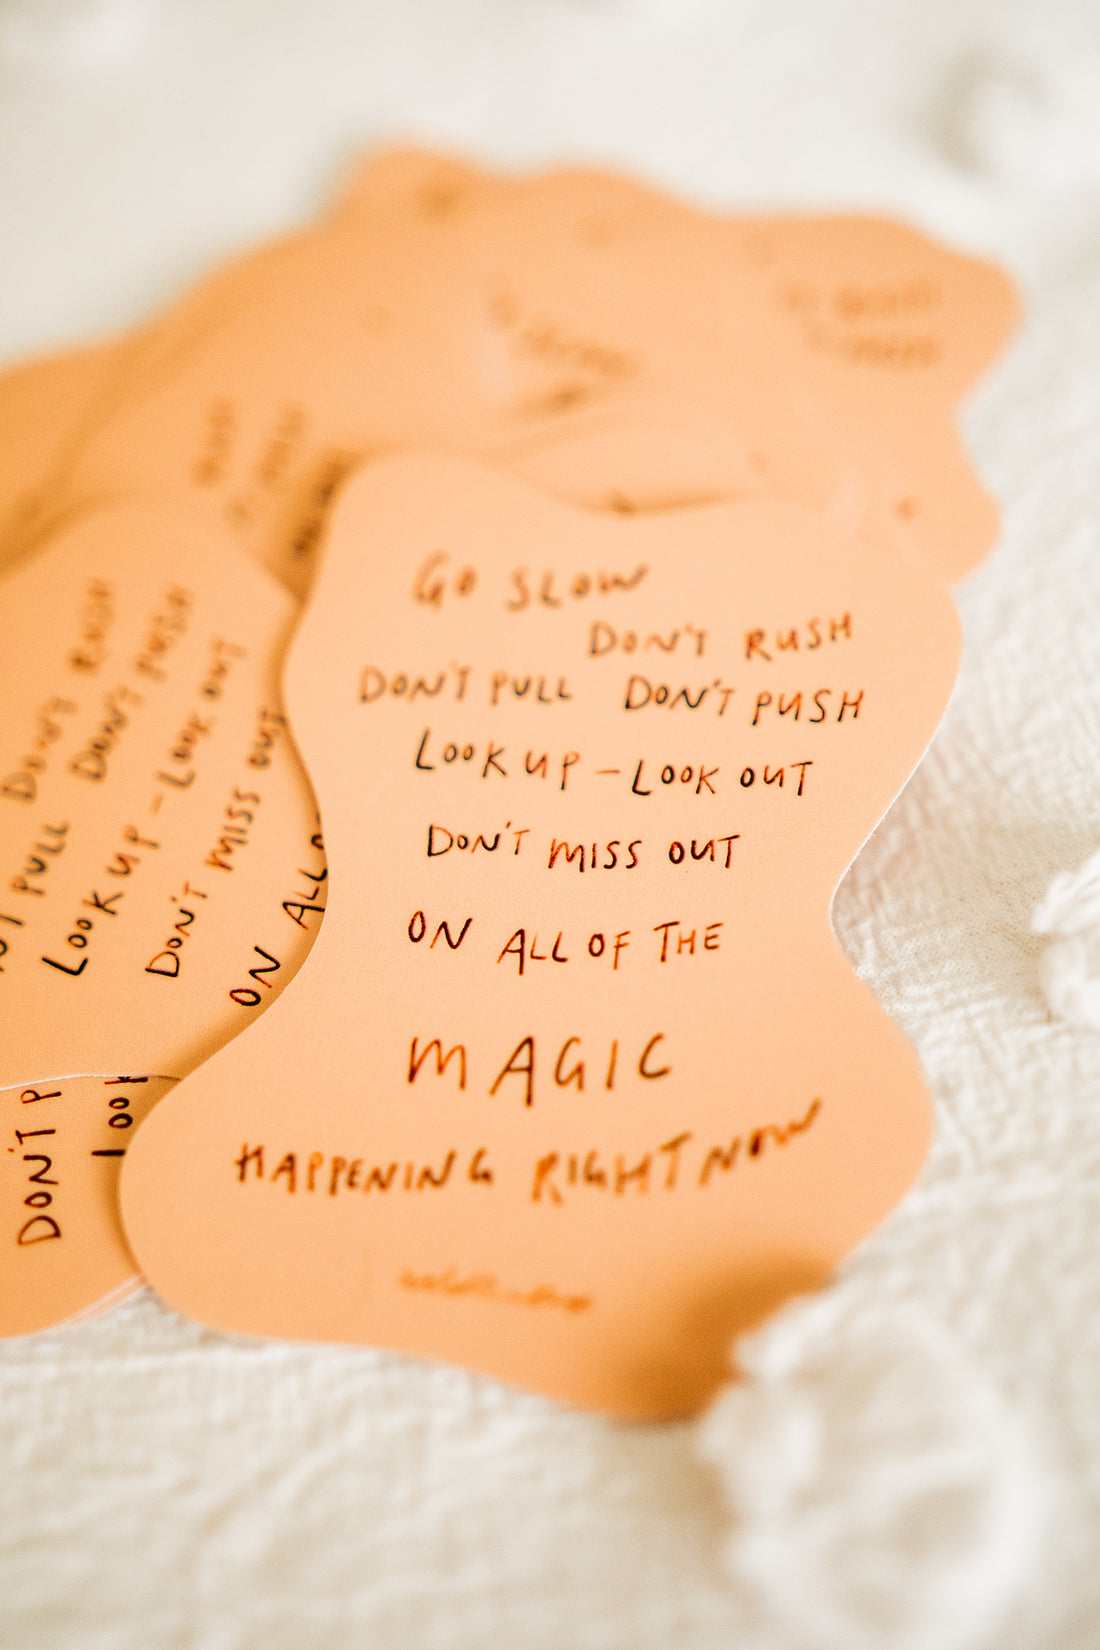 GO SLOW
DON'T RUSH
DON'T PULL DON'T PUSH
LOOK UP – LOOK OUT
DON'T MISS OUT
ON ALL OF THE
MAGIC
HAPPENING RIGHT NOW
DON'T RUSH
PULL DON'T PUSH
LOOK UP – LOOK OUT
DON'T MISS OUT
ON ALL
DON'T P
LOOK